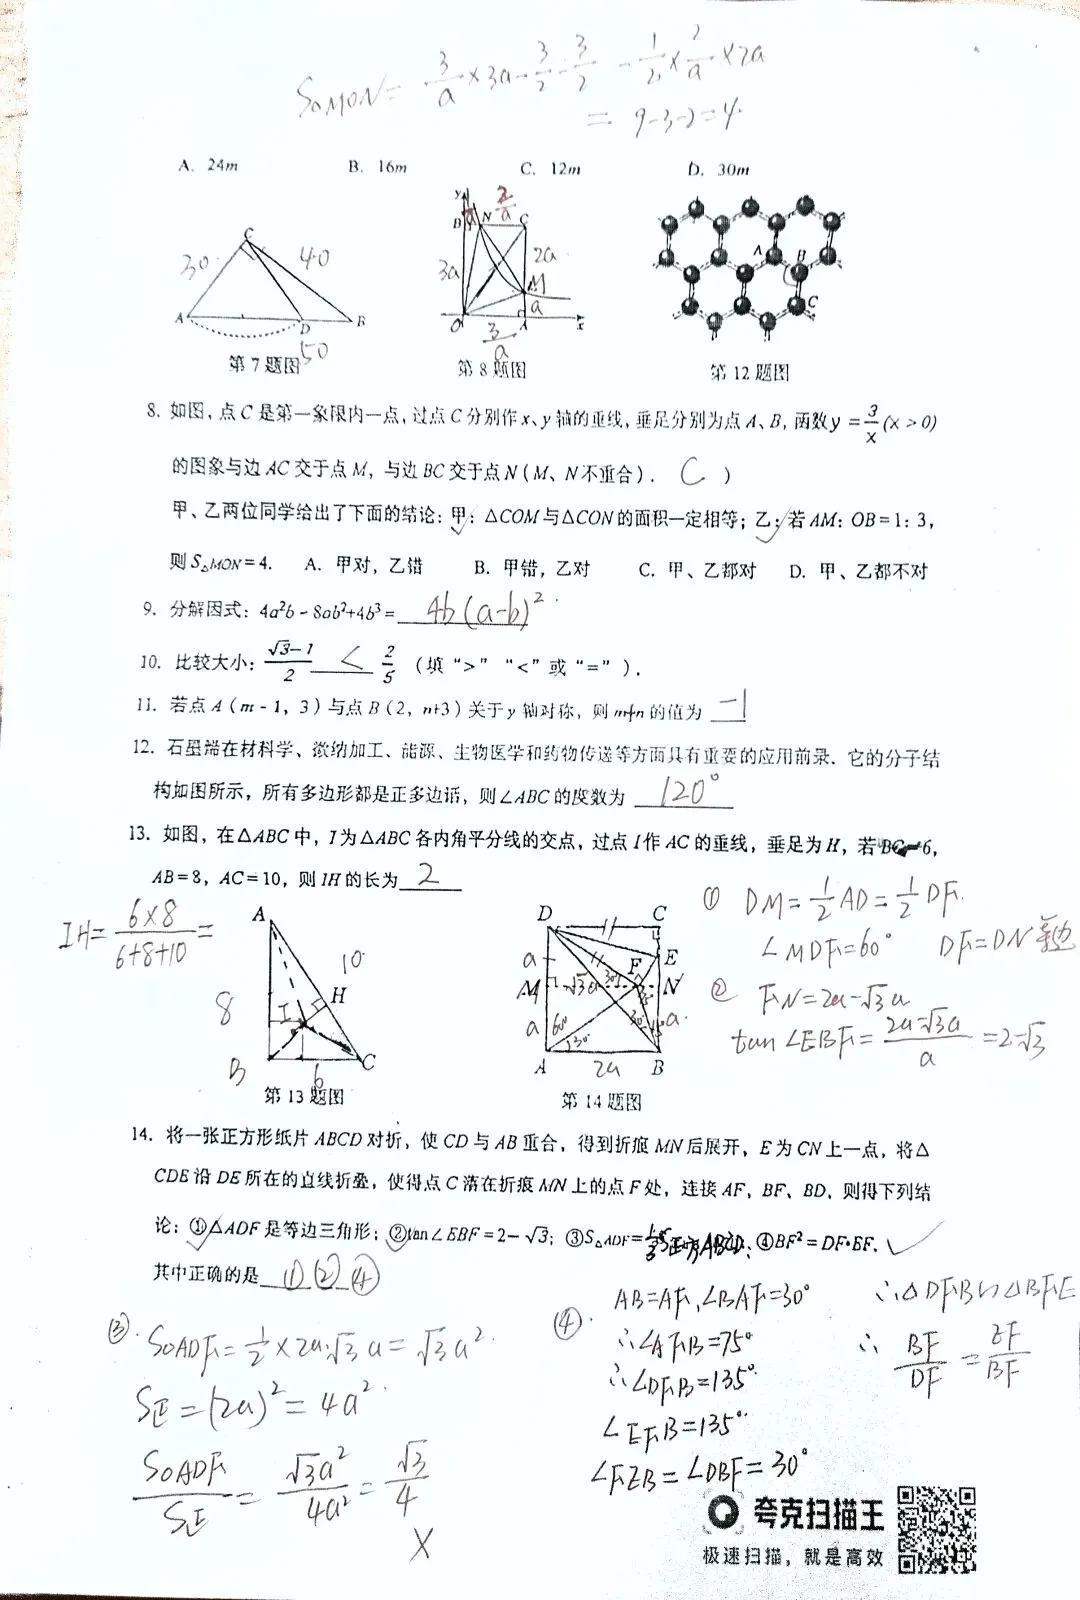 S△MON = 3/a × 3a - 3/2 - 3/2 - 1/2 × 2/a × 2a
= 9-3-2=4.
A. 24m B. 16m C. 12m D. 30m
C 30 40 A D B 50
第7题图
y B N C 2/a 3a 2a M a O A x 3/a
第8题图
A B C
第12题图
8. 如图,点C是第一象限内一点,过点C分别作x、y轴的垂线,垂足分别为点A、B,函数y=3/x(x>0)
的图象与边AC交于点M,与边BC交于点N(M、N不重合). C )
甲、乙两位同学给出了下面的结论:甲:△COM与△CON的面积一定相等;乙:若AM:OB=1:3,
则S△MON=4. A. 甲对,乙错 B. 甲错,乙对 C. 甲、乙都对 D. 甲、乙都不对
9. 分解因式:4a²b-8ab²+4b³= 4b(a-b)²
10. 比较大小:(√3-1)/2 < 2/5 (填“>”“<”或“=”).
11. 若点A(m-1,3)与点B(2,n+3)关于y轴对称,则m+n的值为 -1
12. 石墨烯在材料科学、微纳加工、能源、生物医学和药物传递等方面具有重要的应用前景.它的分子结
构如图所示,所有多边形都是正多边形,则∠ABC的度数为 120°
13. 如图,在△ABC中,I为△ABC各内角平分线的交点,过点I作AC的垂线,垂足为H,若BC=6,
AB=8,AC=10,则IH的长为 2
IH= (6×8)/(6+8+10) =
A 10 8 H I B 6 C
第13题图
D C E a M √3a 30° F N a 60° 30° a A 2a B
第14题图
① DM=1/2AD=1/2DF.
∠MDF=60° DF=DA 等边
② FN=2a-√3a
tan∠EBF= (2a-√3a)/a =2-√3
14. 将一张正方形纸片ABCD对折,使CD与AB重合,得到折痕MN后展开,E为CN上一点,将△
CDE沿DE所在的直线折叠,使得点C落在折痕MN上的点F处,连接AF,BF、BD.则得下列结
论:①△ADF是等边三角形;②tan∠EBF=2-√3;③S△ADF=1/3S正方ABCD;④BF²=DF·EF.
其中正确的是 ①②④
③. S△ADF=1/2×2a·√3a=√3a².
S正=(2a)²=4a².
S△ADF/S正 = √3a²/4a² = √3/4
×
④. AB=AF,∠BAF=30°
∴∠AFB=75°
∴∠DFB=135°.
∠EFB=135°.
∠FEB=∠DBF=30°
∴△DFB∽△BFE
∴ BF/DF = EF/BF
夸克扫描王
极速扫描,就是高效